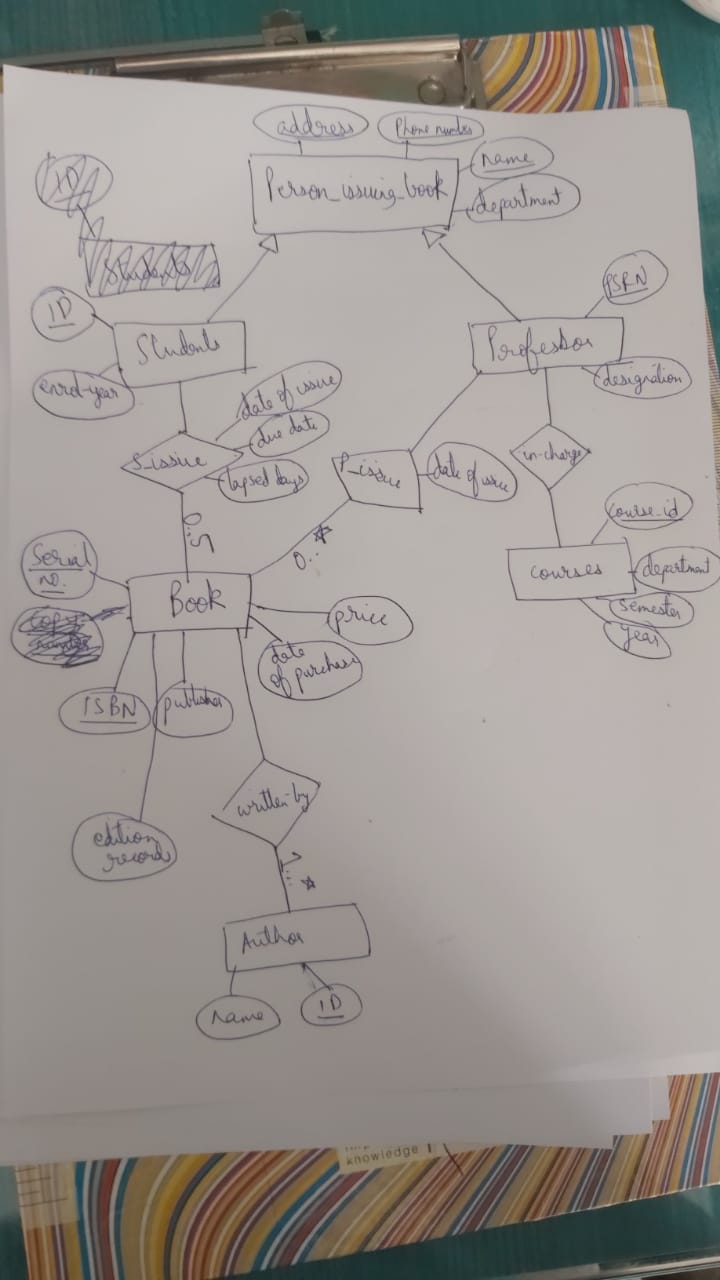 address
Phone number
name
Person_issuing_book
department
ID
Students
ID
Students
enrol-year
PSRN
Professor
designation
date of issue
due date
lapsed days
S_issue
P_issue
date of issue
in-charge
0..5
0..*
course_id
courses
department
semester
year
Serial
no.
Book
price
date
of purchase
ISBN
publisher
edition
record
written-by
1..*
Author
name
ID
knowledge